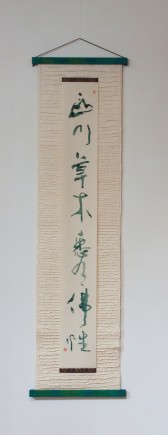 山川草木悉有佛性